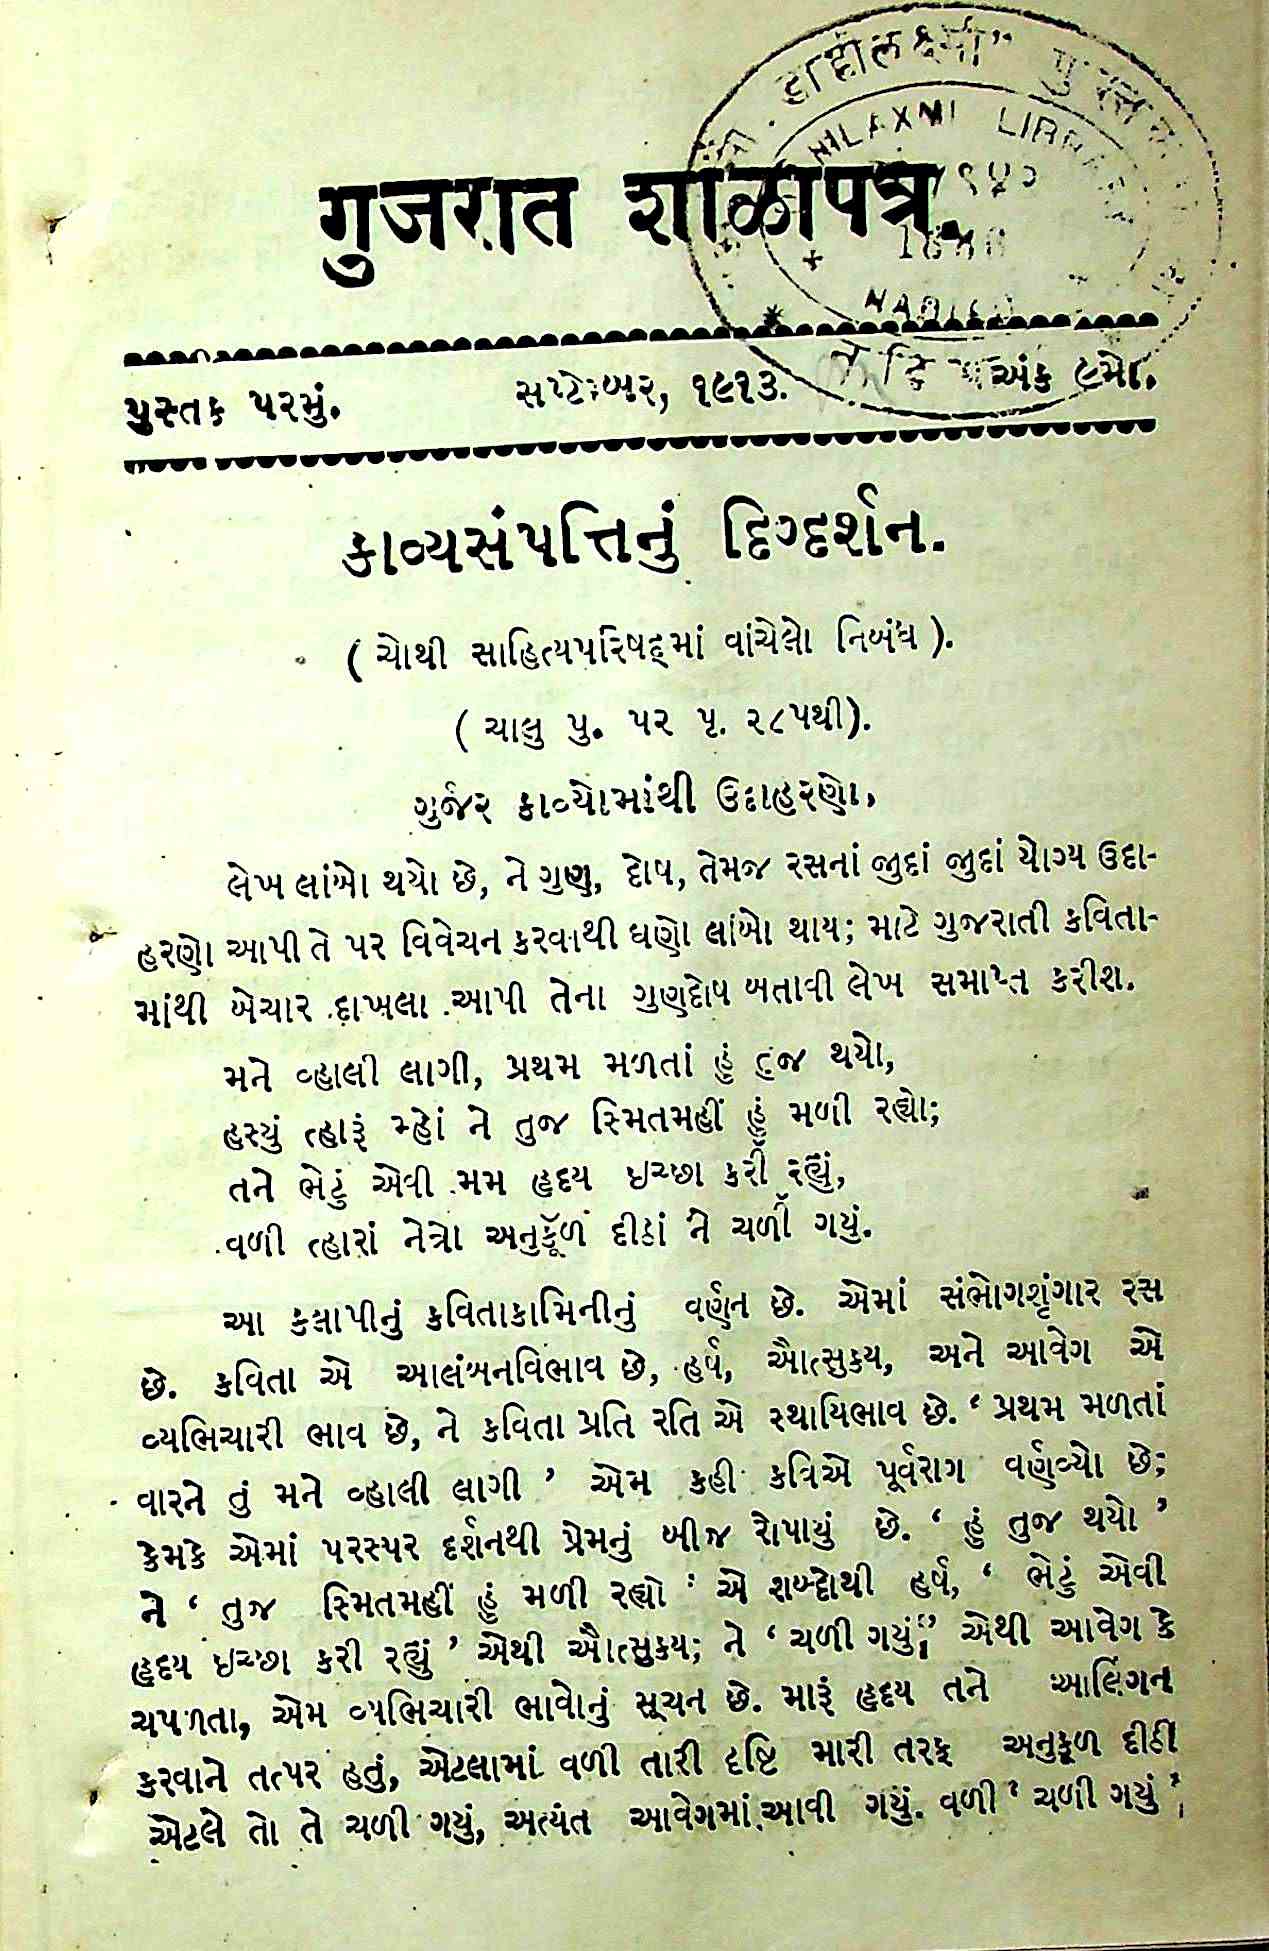 ડાહીલક્ષ્મી" પુસ્તક
LAXMI LIBRA
ગુજરાત શાળાપત્ર.
પુસ્તક ૫૨મું. સપ્ટેમ્બર, ૧૯૧૩. અંક ૯મો.
કાવ્યસંપત્તિનું દિગ્દર્શન.
( ચોથી સાહિત્યપરિષદ્‌માં વાંચેલો નિબંધ ).
( ચાલુ પુ. ૫૨ પૃ. ૨૮૫થી).
ગુર્જર કાવ્યોમાંથી ઉદાહરણો.
લેખ લાંબો થયો છે, ને ગુણ, દોષ, તેમજ રસનાં જુદાં જુદાં યોગ્ય ઉદા-
હરણો આપી તે પર વિવેચન કરવાથી ઘણો લાંબો થાય; માટે ગુજરાતી કવિતા-
માંથી બેચાર દાખલા આપી તેના ગુણદોષ બતાવી લેખ સમાપ્ત કરીશ.
મને વ્હાલી લાગી, પ્રથમ મળતાં હું તુજ થયો,
હસ્યું ત્હારૂં મ્હોં ને તુજ સ્મિતમહીં હું મળી રહ્યો;
તને ભેટું એવી મમ હૃદય ઇચ્છા કરી રહ્યું,
વળી ત્હારાં નેત્રો અનુકૂળ દીઠાં ને ચળી ગયું.
આ કલાપીનું કવિતાકામિનીનું વર્ણન છે. એમાં સંભોગશૃંગાર રસ
છે. કવિતા એ આલંબનવિભાવ છે, હર્ષ, ઔત્સુક્ય, અને આવેગ એ
વ્યભિચારી ભાવ છે, ને કવિતા પ્રતિ રતિ એ સ્થાયિભાવ છે. ‘ પ્રથમ મળતાં
વારને તું મને વ્હાલી લાગી ’ એમ કહી કવિએ પૂર્વરાગ વર્ણવ્યો છે;
કેમકે એમાં પરસ્પર દર્શનથી પ્રેમનું બીજ રોપાયું છે. ‘ હું તુજ થયો ’
ને ‘ તુજ સ્મિતમહીં હું મળી રહ્યો ’ એ શબ્દોથી હર્ષ, ‘ ભેટું એવી
હૃદય ઇચ્છા કરી રહ્યું ’ એથી ઔત્સુક્ય; ને ‘ ચળી ગયું ’ એથી આવેગ કે
ચપળતા, એમ વ્યભિચારી ભાવોનું સૂચન છે. મારૂં હૃદય તને આલિંગન
કરવાને તત્પર હતું, એટલામાં વળી તારી દૃષ્ટિ મારી તરફ અનુકૂળ દીઠી
એટલે તો તે ચળી ગયું, અત્યંત આવેગમાં આવી ગયું. વળી ‘ ચળી ગયું ’